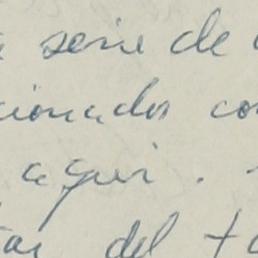 a serie de
cionados co
aqui.
tas del ta